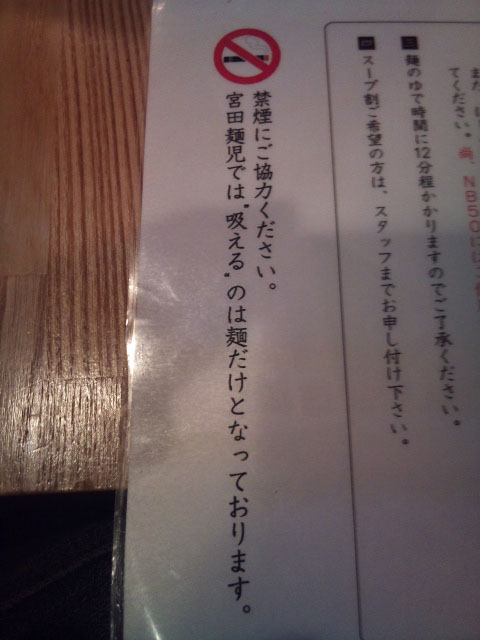 てください。尚、NB50
麺のゆで時間に12分程かかりますのでご了承ください。
スープ割ご希望の方は、スタッフまでお申し付け下さい。
禁煙にご協力ください。
宮田麺児では"吸える"のは麺だけとなっております。